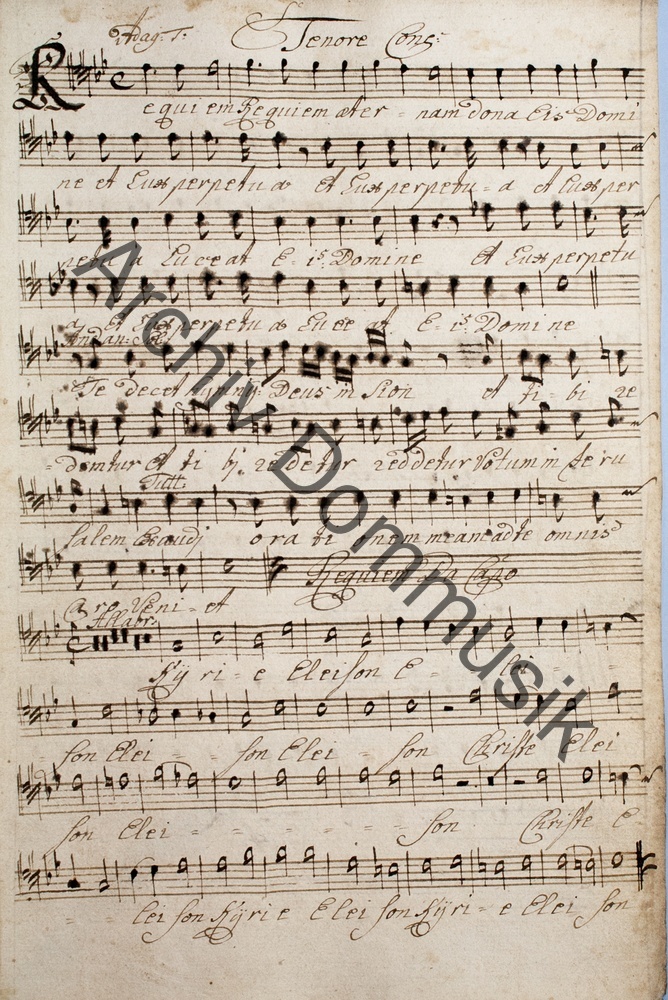 Adag: T: Tenore Conc:
Requiem Requiem æter = nam dona Eis Domi
ne et Lux perpetua et Lux perpetu = a et Lux per
petu a Luceat E = is Domine et Lux perpetu
a et Lux perpetu a Luce at E = is Domine
Andan: Solo
Te decet hymny Deus in Sion et ti = bi re
= detur Et ti bj reddetur reddetur Votum in Jeru
Tutti
salem Exaudj ora ti onem meam ad te omnis
Requiem Da Capo
Caro Veni = et
Allabr:
Kÿ ri = e Elei son E = lei =
son Elei = = son Elei = son Christe Elei
son Elei = = = = = = son Christe E
= = lei son Kÿri e Elei son Kÿri = e Elei son
Archiv Dommusik